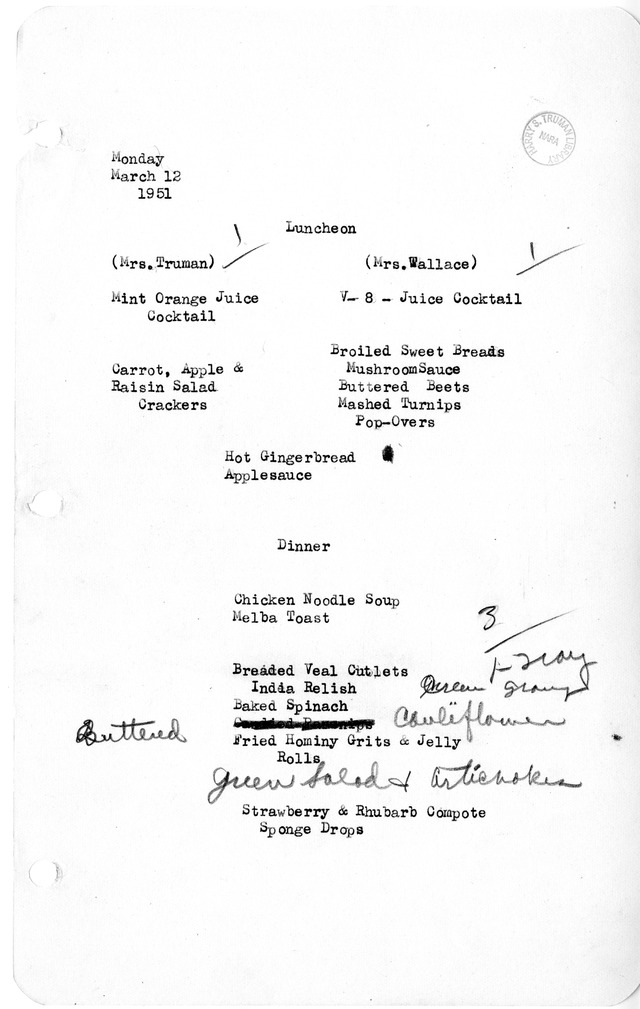 HARRY S. TRUMAN LIBRARY
NARA
Monday
March 12
1951
Luncheon
1
(Mrs.Truman)
(Mrs.Wallace)
1
Mint Orange Juice
Cocktail
V- 8 - Juice Cocktail
Carrot, Apple &
Raisin Salad
Crackers
Broiled Sweet Breads
MushroomSauce
Buttered Beets
Mashed Turnips
Pop-Overs
Hot Gingerbread
Applesauce
Dinner
Chicken Noodle Soup
Melba Toast
3
1-Tray
Breaded Veal Cutlets
India Relish
Cream Gravy
Baked Spinach
Buttered Cauliflower
Fried Hominy Grits & Jelly
Rolls
Green Salad & Artichokes
Strawberry & Rhubarb Compote
Sponge Drops